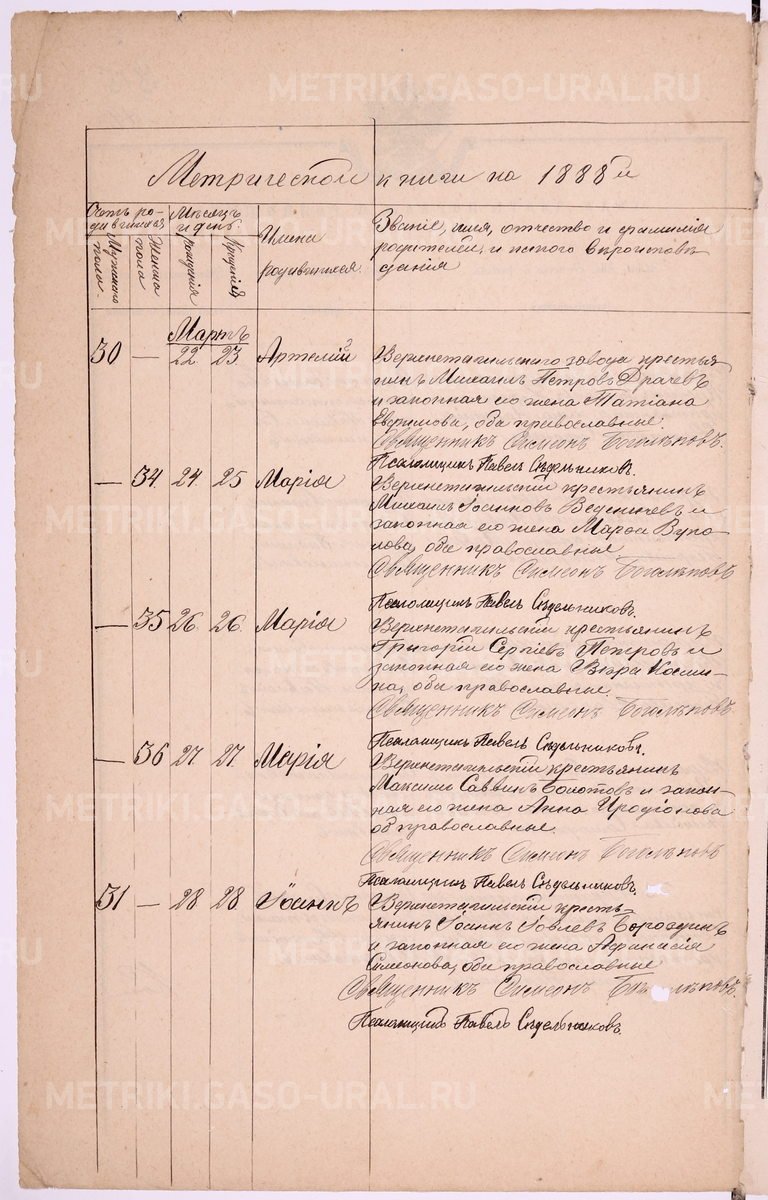 Метрической книги на 1888 г.
Счетъ ро-
дившихся
Мужскаго
пола.
Женска
пола
Мѣсяцъ
и день.
рожденія
Крещенія
Имена
родившихся.
Званіе, имя, отчество и фамилія
родителей, и какого вѣроисповѣ
данія
Мартъ
30 — 22 23 Артемій Верхнетагильскаго завода крестья
нинъ Михаилъ Петровъ Драчевъ
и законная его жена Татіана
Евфимова, оба православные.
Священникъ Симеонъ Боголѣповъ.
Псаломщикъ Павелъ Сѣдельниковъ.
— 34. 24. 25 Марія Верхнетагильскій крестьянинъ
Михаилъ Іоанновъ и
законная его жена Марѳа Вуко-
лова, оба православные
Священникъ Симеонъ Боголѣповъ
Псаломщикъ Павелъ Сѣдельниковъ.
— 35 26. 26. Марія Верхнетагильскій крестьянинъ
Григорій Сергіевъ Петровъ и
законная его жена Вѣра Косми-
на, оба православные.
Священникъ Симеонъ Боголѣповъ
Псаломщикъ Павелъ Сѣдельниковъ.
— 36 27 27 Марія Верхнетагильскій крестьянинъ
Максимъ Саввинъ Болотовъ и закон-
ная его жена Анна Иродіонова
об православные.
Священникъ Симеонъ Боголѣповъ
Псаломщикъ Павелъ Сѣдельниковъ.
31 — 28 28 Іоаннъ Верхнетагильскій кресть-
янинъ Іоаннъ Іовлевъ Бороздинъ
и законная его жена Афанасія
Симеонова, оба православные
Священникъ Симеонъ Боголѣповъ.
Псаломщикъ Павелъ Сѣдельниковъ.
METRIKI.GASO-URAL.RU
METRIKI.GASO-URAL.RU
METRIKI.GASO-URAL.RU
METRIKI.GASO-URAL.RU
METRIKI.GASO-URAL.RU
METRIKI.GASO-URAL.RU
METRIKI.GASO-URAL.RU
METRIKI.GASO-URAL.RU